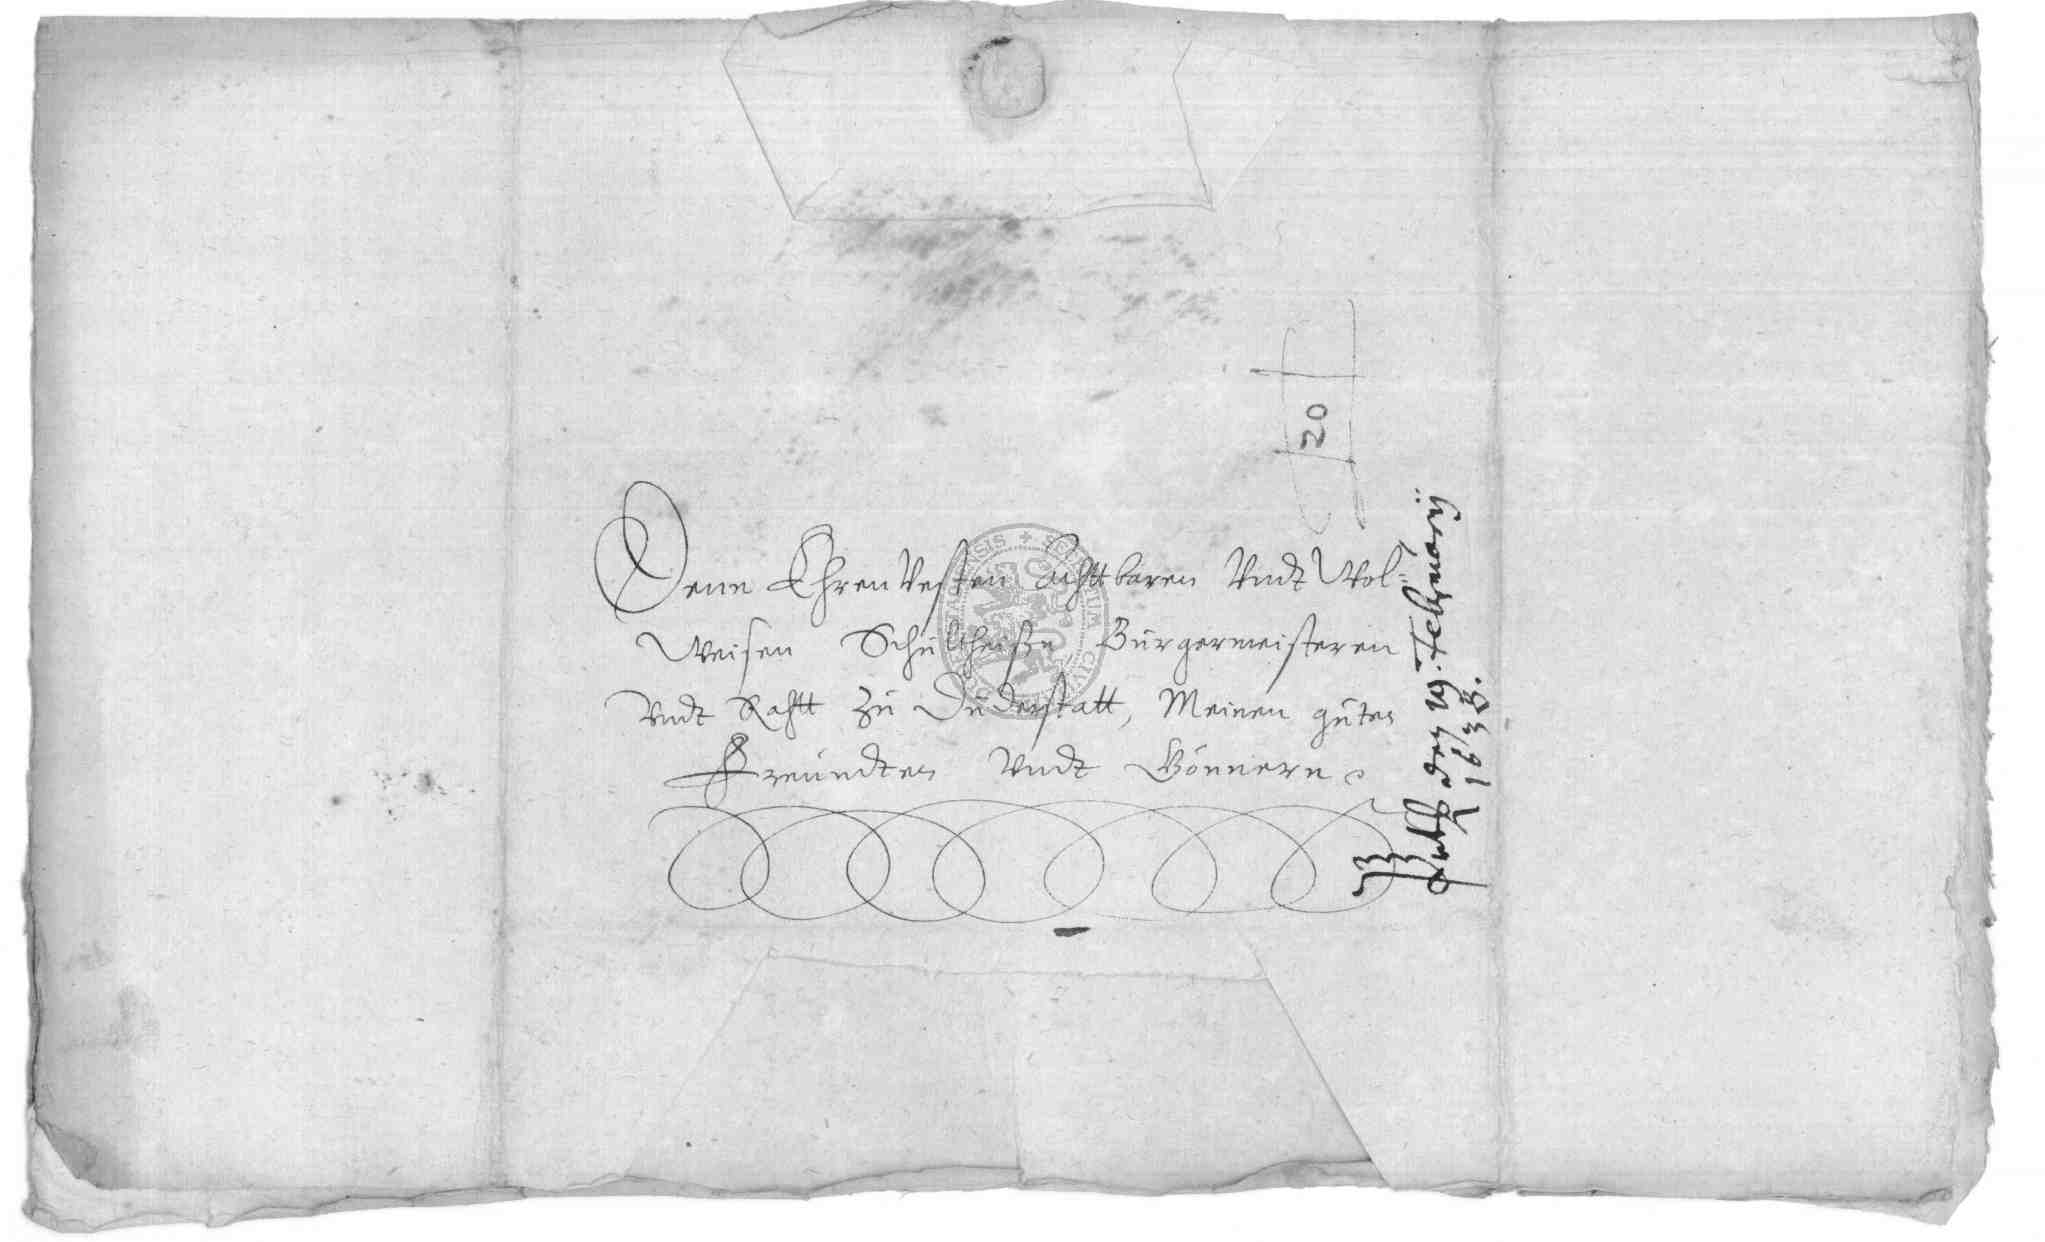 Denn EhrenVesten Achttbaren Vndt Wol=
Weisen Schultheißn, Bürgermeisteren
Vndt Rahtt zu Duderstatt, Meinen guten
Freundten Vndt Gönnern
20
den Februarij
1638.